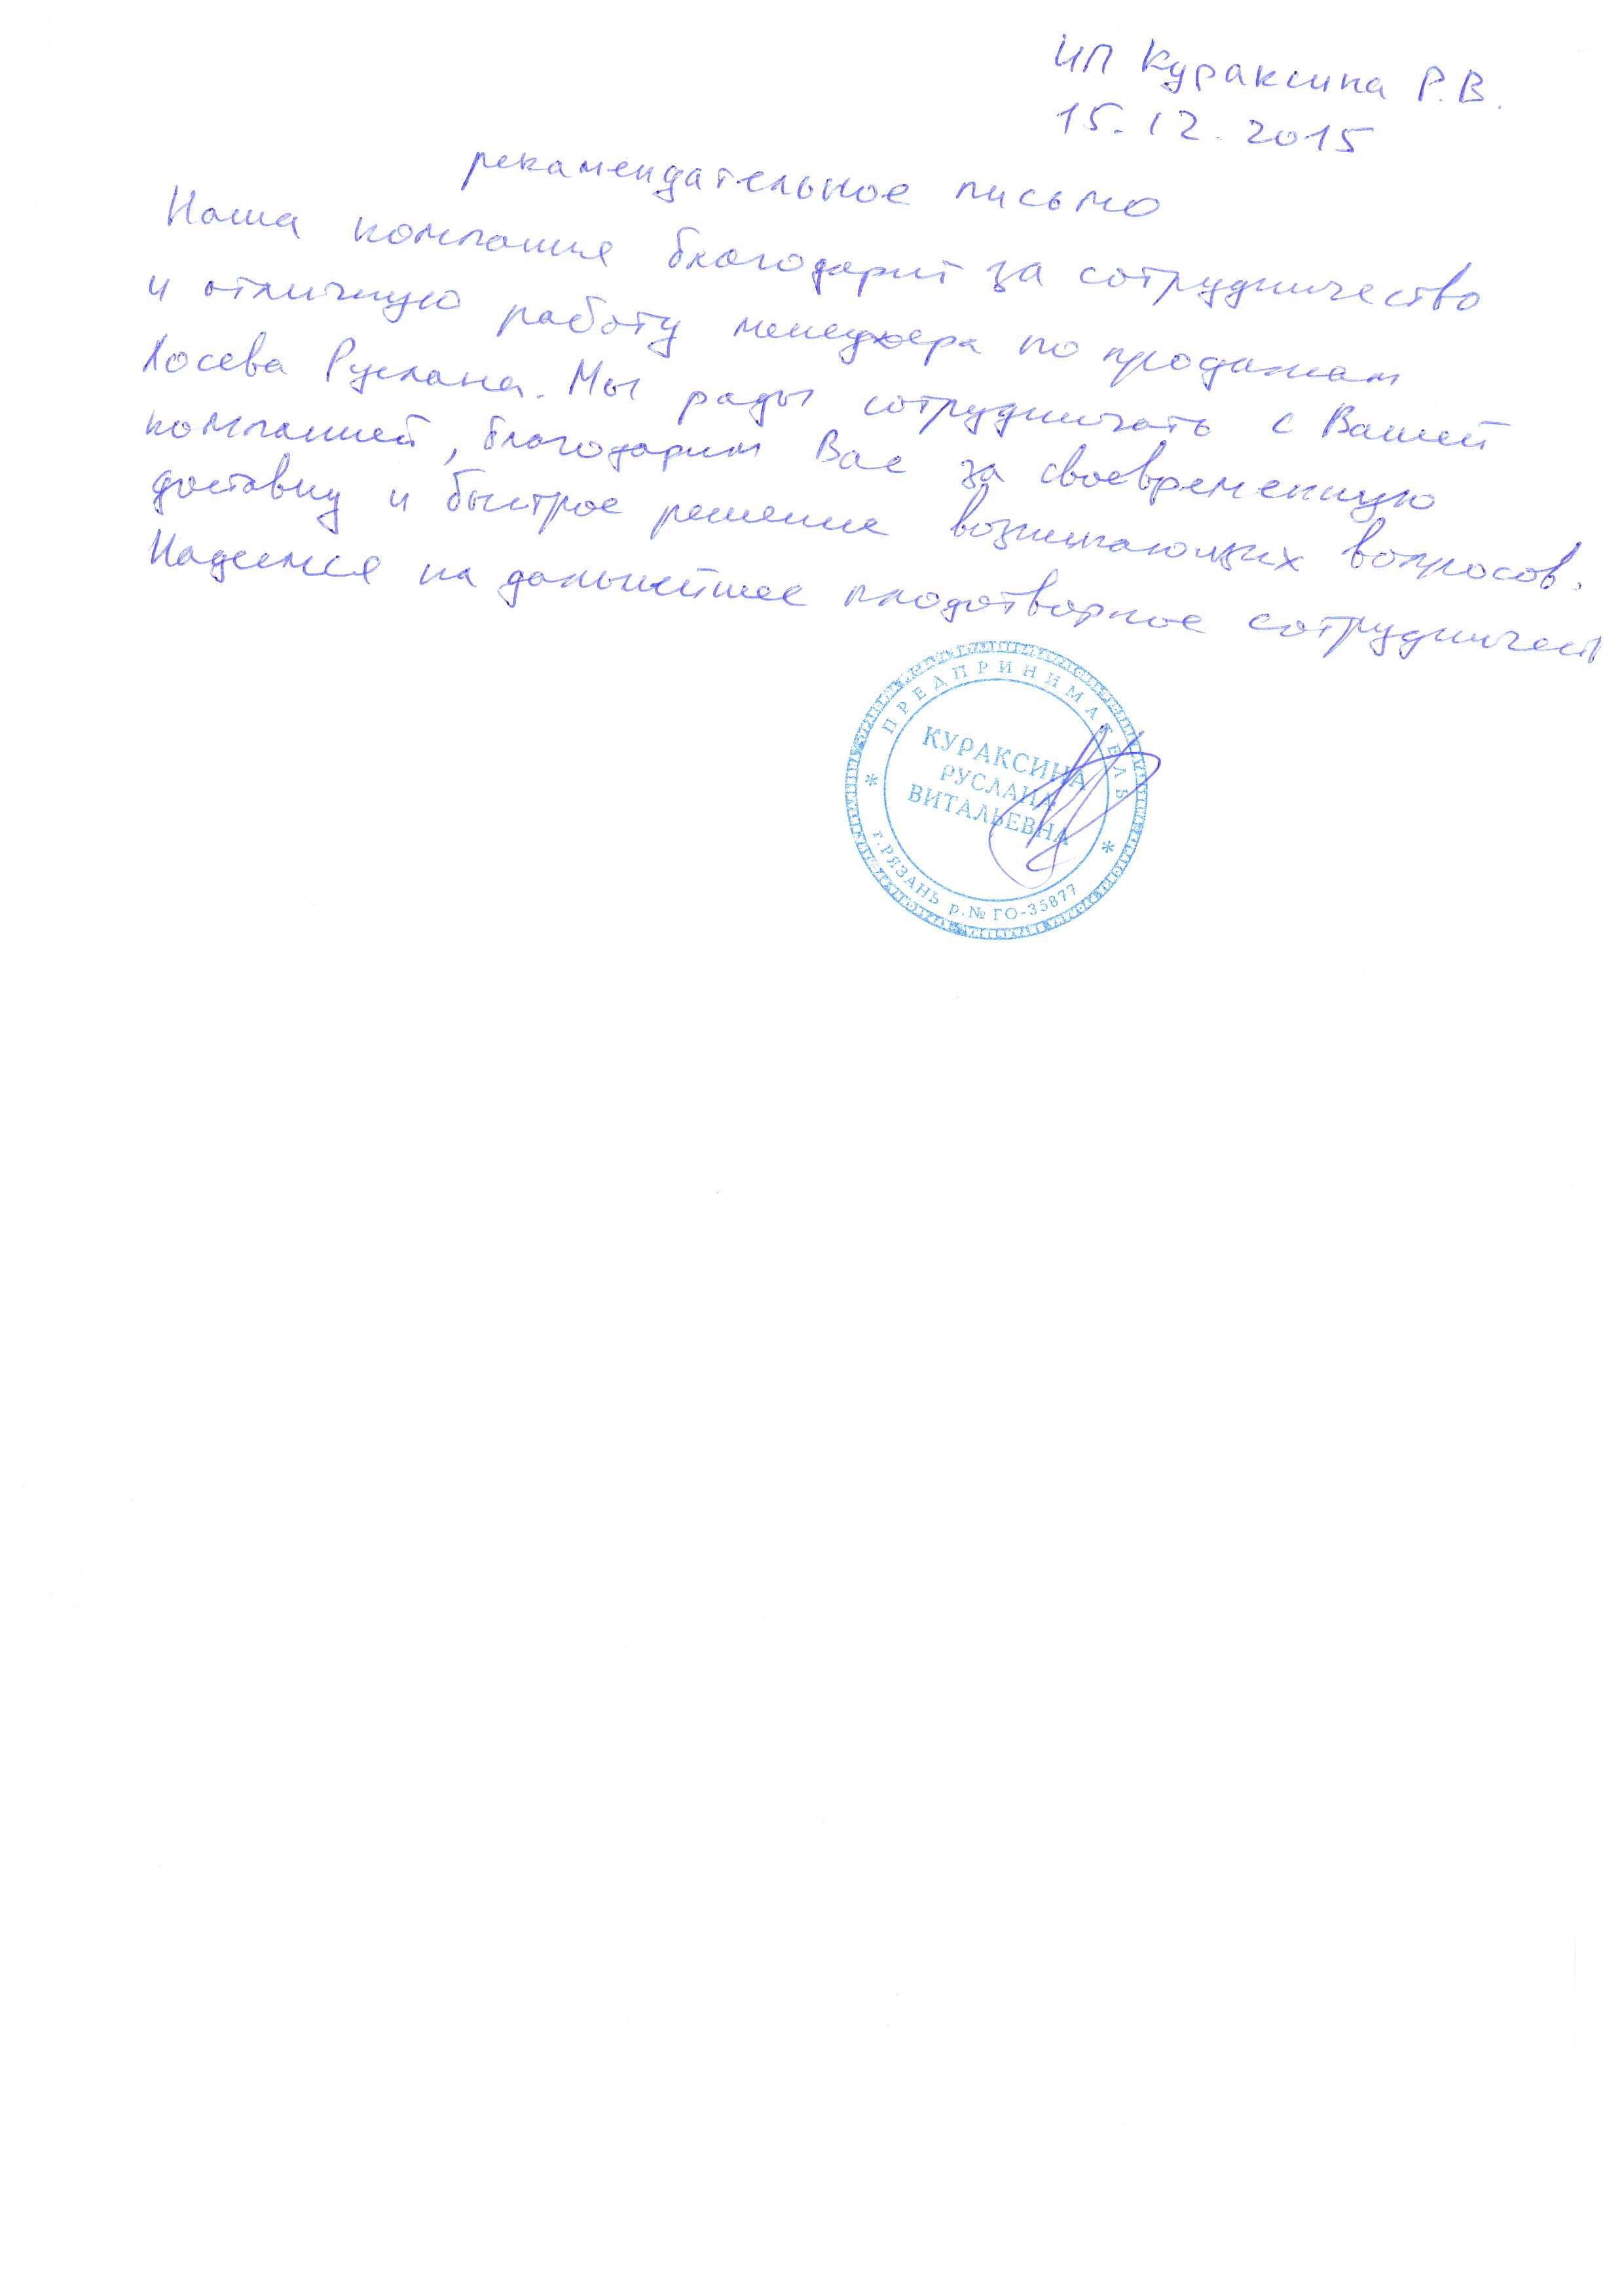 ИП Кураксина Р.В.
15.12.2015
рекамендательное письмо
Наша компания благодарит за сотрудничество
и отличную работу менеджера по продажам
Лосева Руслана. Мы рады сотрудничать с Вашей
компанией, благодарим Вас за своевременную
доставку и быстрое решение возникающих вопросов.
Надеемся на дальнейшее плодотворное сотрудничест
ПРЕДПРИНИМАТЕЛЬ
КУРАКСИНА
РУСЛАНА
ВИТАЛЬЕВНА
* г.РЯЗАНЬ р.№ ГО-35877 *